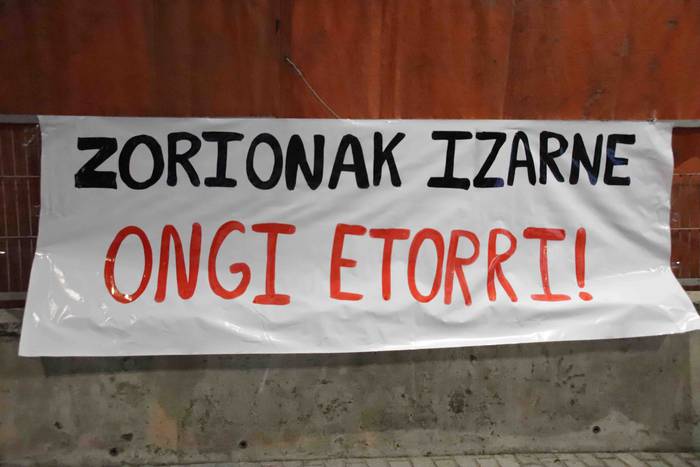 ZORIONAK IZARNE
ONGI ETORRI!